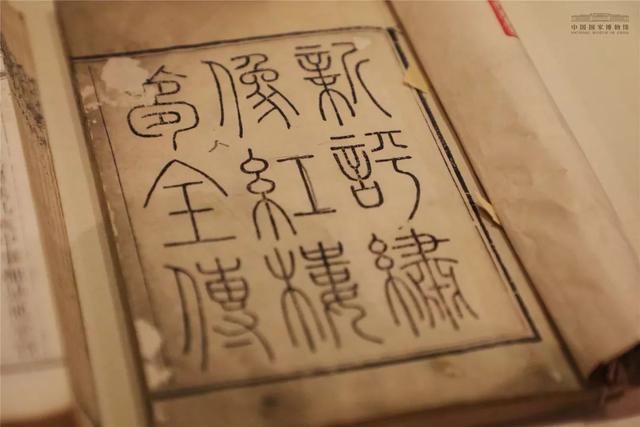 新評繡
像紅樓
夢全傳
中国国家博物馆
NATIONAL MUSEUM OF CHINA